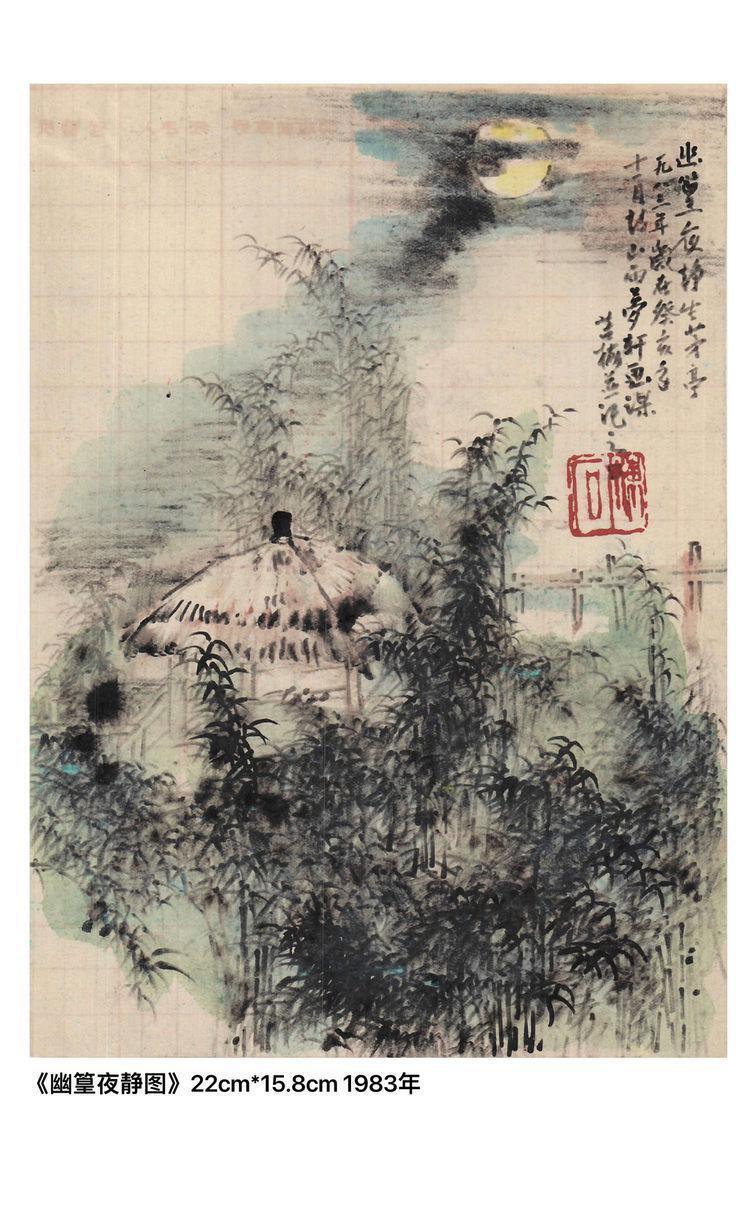 幽篁夜静生茅亭
一九八三年岁在癸亥年
十一月于山雨夢軒画课
苦梅并记之
《幽篁夜静图》22cm*15.8cm 1983年